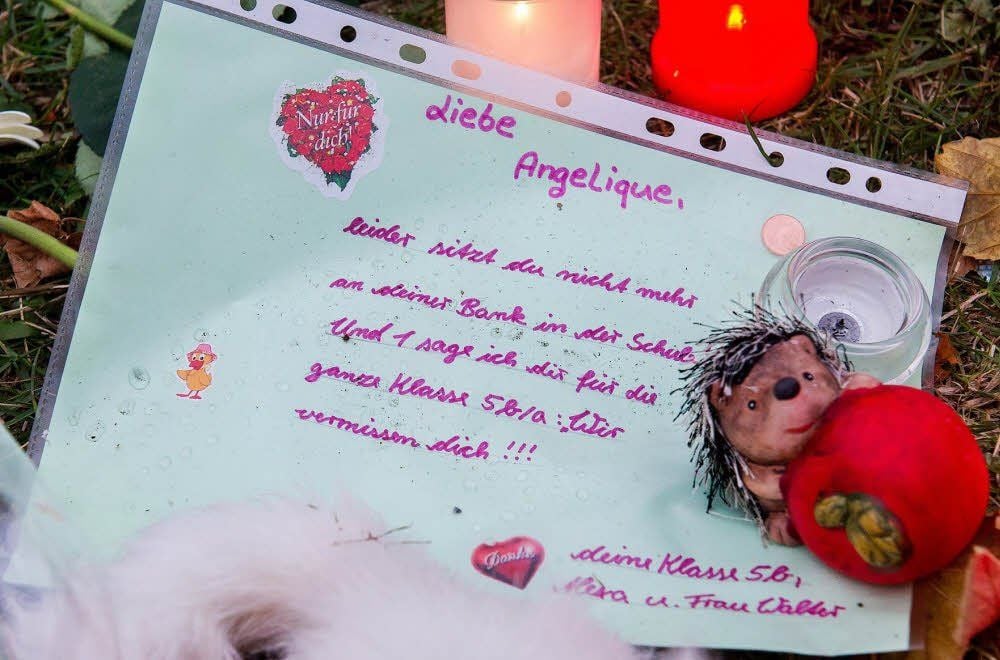 Nur für
dich!
Liebe
Angelique,
leider sitzt du nicht mehr
an deiner Bank in der Schule
Und 1 sage ich dir für die
ganze Klasse 5b/a: „Wir
vermissen dich !!!
Danke
deine Klasse 5b,
u. Frau Walter